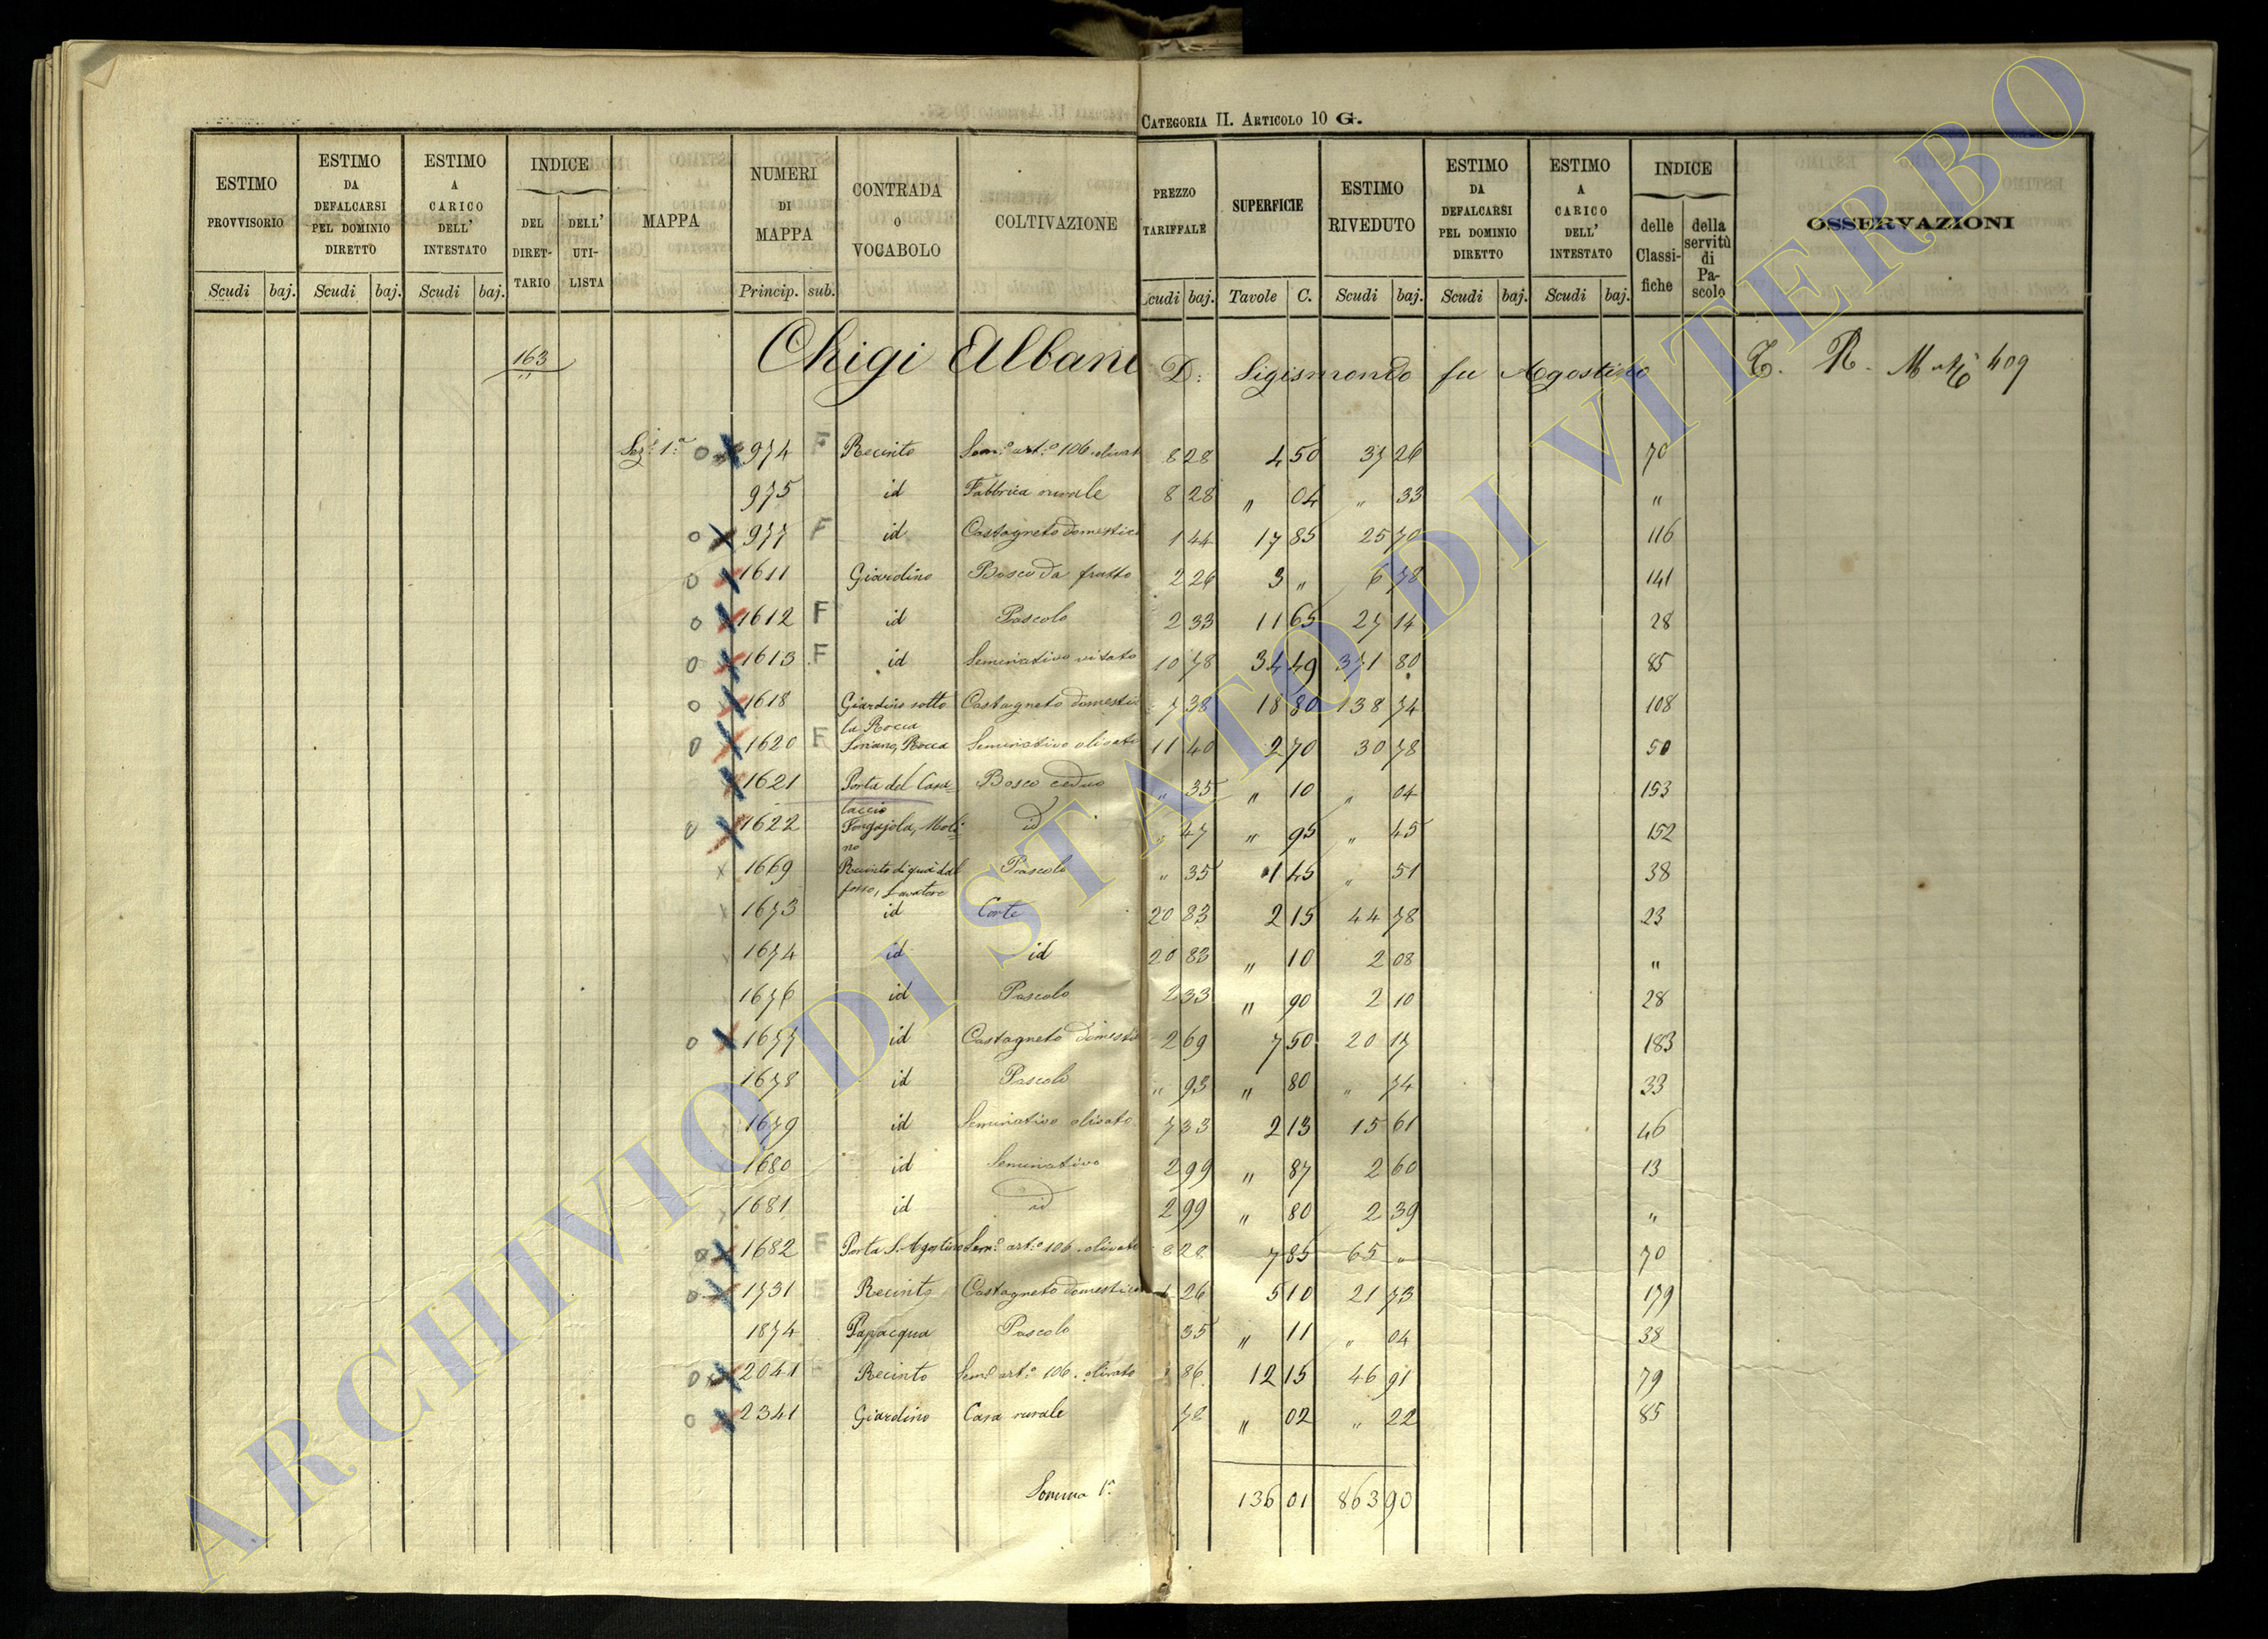 CATEGORIA II. ARTICOLO 10 G.
ESTIMO PROVVISORIO | ESTIMO DA DEFALCARSI PEL DOMINIO DIRETTO | ESTIMO A CARICO DELL' INTESTATO | INDICE DEL DIRET-TARIO | DELL' UTI-LISTA | MAPPA | NUMERI DI MAPPA | CONTRADA O VOCABOLO | COLTIVAZIONE | PREZZO TARIFFALE | SUPERFICIE | ESTIMO RIVEDUTO | ESTIMO DA DEFALCARSI PEL DOMINIO DIRETTO | ESTIMO A CARICO DELL' INTESTATO | INDICE delle Classi-fiche | della servitù di Pa-scolo | OSSERVAZIONI
Scudi | baj. | Scudi | baj. | Scudi | baj. | Princip. | sub. | Scudi | baj. | Tavole | C. | Scudi | baj. | Scudi | baj. | Scudi | baj.
163 Chigi Albani D: Sigismondo fu Agostino T. R. M 409
Sez: 1ª o 974 F Recinto Sem:º art:º 106 olivat 8 28 4 50 37 26 70
975 id Fabbrica rurale 8 28 " 04 " 33 "
o 977 F id Castagneto domestico 1 44 17 85 25 70 116
o 1611 Giardino Bosco da frutto 2 26 3 " 6 78 141
o 1612 F id Pascolo 2 33 11 65 27 14 28
o 1613 F id Seminativo vitato 10 78 34 49 371 80 85
o 1618 Giardino sotto la Rocca Castagneto domesti 7 38 18 80 138 74 108
o 1620 F Soriano, Rocca Seminativo olivato 11 40 2 70 30 78 50
1621 Porta del Casa=laccio Bosco ceduo " 35 " 10 " 04 153
o 1622 Fongajola, Moli=no id " 47 " 95 " 45 152
x 1669 Recinto di quà dal fosso, Lavatore Pascolo " 35 1 45 " 51 38
x 1673 id Corte 20 83 2 15 44 78 23
x 1674 id id 20 83 " 10 2 08 "
1676 id Pascolo 2 33 " 90 2 10 28
o 1677 id Castagneto domesti 2 69 7 50 20 17 183
1678 id Pascolo " 93 " 80 " 74 33
x 1679 id Seminativo olivato 7 33 2 13 15 61 46
x 1680 id Seminativo 2 99 " 87 2 60 13
x 1681 id id 2 99 " 80 2 39 "
o 1682 F Porta S. Agostino Sem:º art:º 106 olivato 8 28 7 85 65 " 70
o 1731 F Recinto Castagneto domestico 26 5 10 21 73 179
1874 Papacqua Pascolo 35 " 11 " 04 38
o 2041 F Recinto Sem:º art:º 106. olivato 86 12 15 46 91 79
o 2341 Giardino Casa rurale 78 " 02 " 22 85
Somma 1ª 136 01 863 90
ARCHIVIO DI STATO DI VITERBO